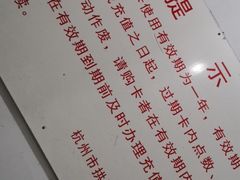 提 示
使用有效期为一年，有效期
充值之日起，过期卡内点数、
动作废，请购卡者在有效期内
在有效期到期前及时办理充值
杭州市拱